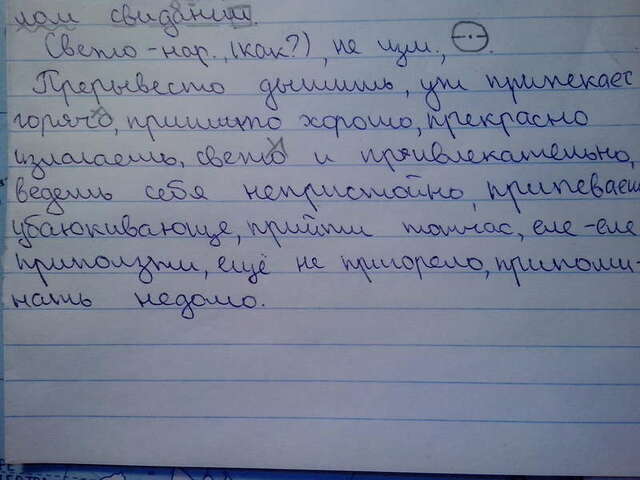 ном свидании.
Светло - нар., (как?), не изм.,
Прерывесто дышишь, уж припекает
горячо, пришито хорошо, прекрасно
излагаешь, светло и привлекательно,
ведёшь себя непристойно, припеваеш
убаюкивающе, прийти тотчас, еле-еле
приползти, ещё не пригорело, припоми-
нать недолго.